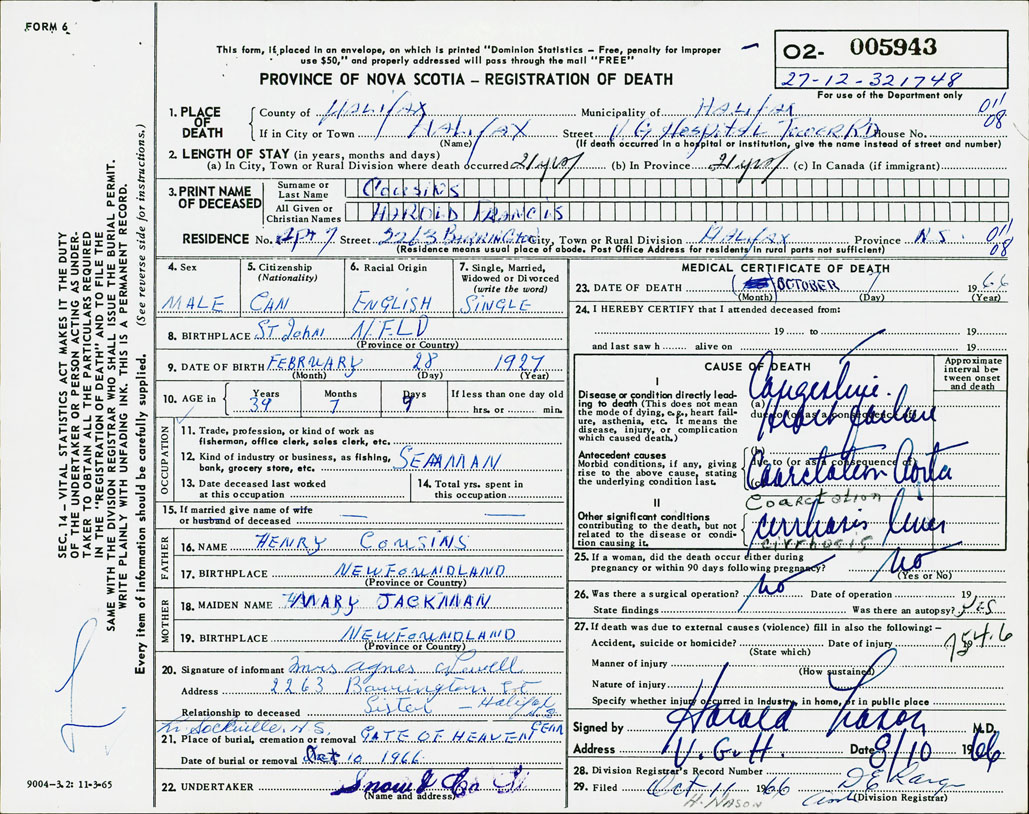 FORM 6
This form, if placed in an envelope, on which is printed "Dominion Statistics – Free, penalty for improper
use $50," and properly addressed will pass through the mail "FREE"
PROVINCE OF NOVA SCOTIA – REGISTRATION OF DEATH
O2- 005943
27-12-321748
For use of the Department only
SEC. 14 – VITAL STATISTICS ACT MAKES IT THE DUTY
OF THE UNDERTAKER OR PERSON ACTING AS UNDER-
TAKER TO OBTAIN ALL THE PARTICULARS REQUIRED
IN THE "REGISTRATION OF DEATH" AND TO FILE THE
SAME WITH THE DIVISION REGISTRAR WHO SHALL ISSUE THE BURIAL PERMIT.
WRITE PLAINLY WITH UNFADING INK. THIS IS A PERMANENT RECORD.
Every item of information should be carefully supplied. (See reverse side for instructions.)
1. PLACE OF DEATH
County of HALIFAX Municipality of HALIFAX 011 08
If in City or Town HALIFAX Street V G Hospital Tower Rd House No.
(Name) (If death occurred in a hospital or institution, give the name instead of street and number)
2. LENGTH OF STAY (in years, months and days)
(a) In City, Town or Rural Division where death occurred 21 yrs (b) In Province 21 yrs (c) In Canada (if immigrant)
3. PRINT NAME OF DECEASED
Surname or Last Name COUSINS
All Given or Christian Names HAROLD FRANCIS
RESIDENCE No. Apt 7 Street 2263 BARRINGTON City, Town or Rural Division HALIFAX Province N.S. 011 08
(Residence means usual place of abode. Post Office Address for residents in rural parts not sufficient)
4. Sex MALE
5. Citizenship (Nationality) CAN
6. Racial Origin ENGLISH
7. Single, Married, Widowed or Divorced (write the word) SINGLE
8. BIRTHPLACE St John NFLD
(Province or Country)
9. DATE OF BIRTH FEBRUARY 28 1927
(Month) (Day) (Year)
10. AGE in Years 39 Months 7 Days 9 If less than one day old hrs. or min.
OCCUPATION
11. Trade, profession, or kind of work as
fisherman, office clerk, sales clerk, etc.
12. Kind of industry or business, as fishing,
bank, grocery store, etc. SEAMAN
13. Date deceased last worked
at this occupation
14. Total yrs. spent in
this occupation
15. If married give name of wife
or husband of deceased — —
FATHER
16. NAME HENRY COUSINS
17. BIRTHPLACE NEWFOUNDLAND
(Province or Country)
MOTHER
18. MAIDEN NAME MARY JACKMAN
19. BIRTHPLACE NEWFOUNDLAND
(Province or Country)
20. Signature of informant Mrs Agnes
Address 2263 Barrington St
Relationship to deceased Sister – Halifax N.S
Sackville, N.S.
21. Place of burial, cremation or removal GATE OF HEAVEN CEM
Date of burial or removal Oct 10 1966
22. UNDERTAKER Snow & Co
(Name and address)
MEDICAL CERTIFICATE OF DEATH
23. DATE OF DEATH OCTOBER 7 1966
(Month) (Day) (Year)
24. I HEREBY CERTIFY that I attended deceased from:
19 to 19
and last saw h alive on 19
CAUSE OF DEATH
Approximate interval between onset and death
I
Disease or condition directly leading to death (This does not mean the mode of dying, e.g., heart failure, asthenia, etc. It means the disease, injury, or complication which caused death.)
(a) Congestive Heart failure
due to (or as a consequence of)
Antecedent causes
Morbid conditions, if any, giving rise to the above cause, stating the underlying condition last.
(b)
due to (or as a consequence of)
(c) Coarctation Aorta
Coarctation
II
Other significant conditions contributing to the death, but not related to the disease or condition causing it.
cirrhosis liver
cirrhosis
25. If a woman, did the death occur either during
pregnancy or within 90 days following pregnancy? No
(Yes or No)
26. Was there a surgical operation? No Date of operation 19
State findings Was there an autopsy? Yes
27. If death was due to external causes (violence) fill in also the following: –
Accident, suicide or homicide? Date of injury 19 754.6
(State which)
Manner of injury
(How sustained)
Nature of injury
Specify whether injury occurred in Industry, in home, or in public place
Signed by Harold M.D.
Address V.G.H. Date 8/10 1966
28. Division Registrar's Record Number
29. Filed Oct 11 1966
H. NASON (Division Registrar)
9004-3.2: 11-3-65